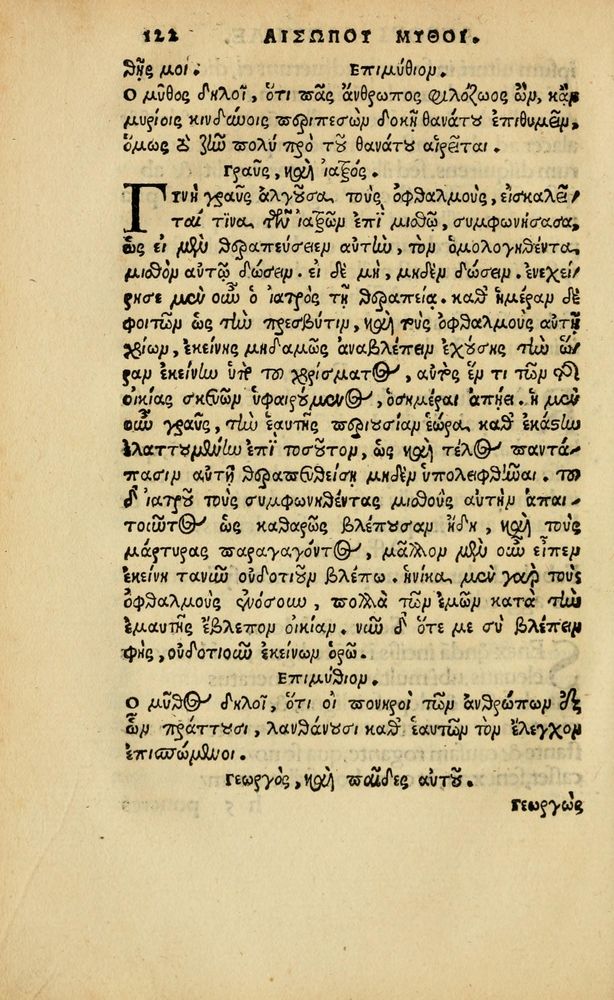 122 ΑΙΣΩΠΟΥ ΜΥΘΟΙ.
θῇς μοι. Επιμύθιον.
Ο μῦθος δηλοῖ, ὅτι πᾶς ἄνθρωπος φιλόζωος ὢν, κἂν
μυρίοις κινδύνοις περιπεσὼν δοκῇ θανάτου ἐπιθυμεῖν,
ὅμως τὸ ζῆν πολὺ πρὸ τοῦ θανάτου αἱρεῖται.
Γραῦς, καὶ ἰατρός.
Γυνὴ γραῦς ἀλγοῦσα τοὺς ὀφθαλμοὺς, εἰσκαλεῖ-
ταί τινα τῶν ἰατρῶν ἐπὶ μισθῷ, συμφωνήσασα,
ὡς εἰ μὲν θεραπεύσειεν αὐτὴν, τὸν ὁμολογηθέντα
μισθὸν αὐτῷ δώσειν. εἰ δὲ μὴ, μηδὲν δώσειν. ἐνεχεί-
ρησε μὲν οὖν ὁ ἰατρὸς τῇ θεραπείᾳ. καθ' ἡμέραν δὲ
φοιτῶν ὡς τὴν πρεσβύτιν, καὶ τοὺς ὀφθαλμοὺς αὐτῇ
χρίων, ἐκείνης μηδαμῶς ἀναβλέπειν ἐχούσης τὴν ὥ-
ραν ἐκείνην ὑπὸ τοῦ χρίσματος, αὐτὸς ἕν τι τῶν τῆς
οἰκίας σκευῶν ὑφαιρούμενος, ὁσημέραι ἀπῄει. ἡ μὲν
οὖν γραῦς, τὴν ἑαυτῆς περιουσίαν ἑώρα καθ' ἑκάστην
ἐλαττουμένην ἐπὶ τοσοῦτον, ὡς καὶ τέλος παντά-
πασιν αὐτῇ θεραπευθείσῃ μηδὲν ὑπολειφθῆναι. τοῦ
δ' ἰατροῦ τοὺς συμφωνηθέντας μισθοὺς αὐτὴν ἀπαι-
τοῦντος ὡς καθαρῶς βλέπουσαν ἤδη, καὶ τοὺς
μάρτυρας παραγαγόντος, μᾶλλον μὲν οὖν εἶπεν
ἐκείνη τανῦν οὐδοτιοῦν βλέπω. ἡνίκα μὲν γὰρ τοὺς
ὀφθαλμοὺς ἐνόσουν, πολλὰ τῶν ἐμῶν κατὰ τὴν
ἐμαυτῆς ἔβλεπον οἰκίαν. νῦν δ' ὅτε με σὺ βλέπειν
φῂς, οὐδοτιοῦν ἐκείνων ὁρῶ.
Επιμύθιον.
Ο μῦθος δηλοῖ, ὅτι οἱ πονηροὶ τῶν ἀνθρώπων ἐξ
ὧν πράττουσι, λανθάνουσι καθ' ἑαυτῶν τὸν ἔλεγχον
ἐπισπώμενοι.
Γεωργὸς, καὶ παῖδες αὐτοῦ.
Γεωργὸς